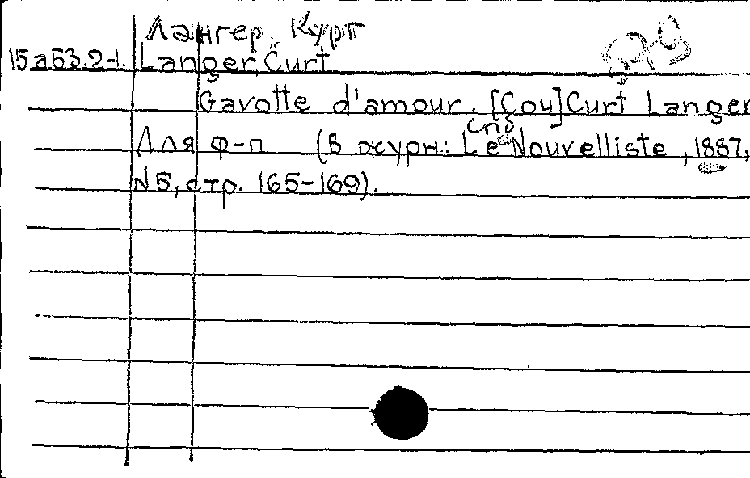 Лангер, Курт
15a53.2-1. Langer, Curt
Gavotte d'amour. [Соч] Curt Langer
Спб
Для ф-п (В журн: Le Nouvelliste, 1887,
N5, стр. 165-169).